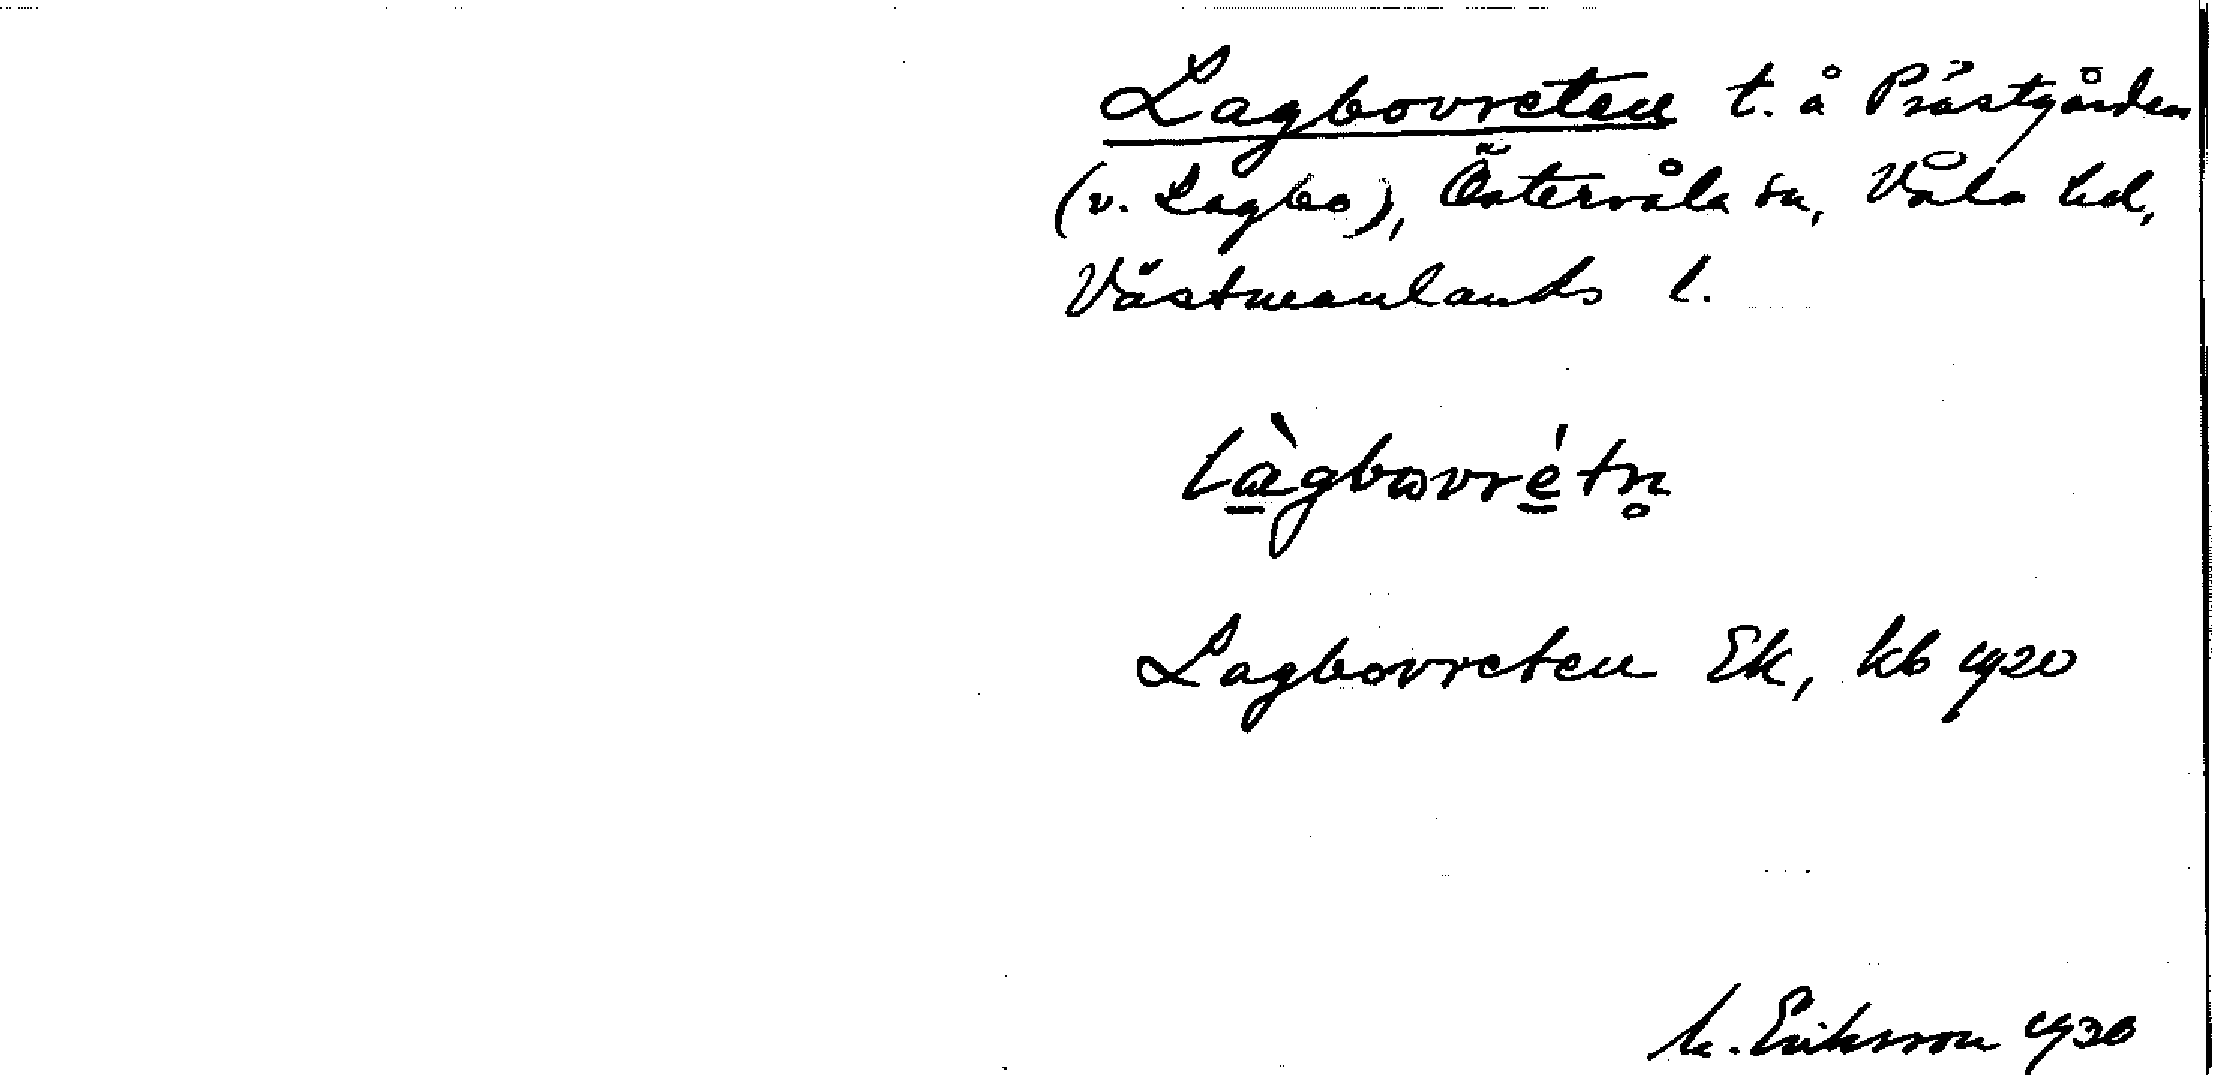 Lagbovreten t. å Prästgården
(v. Lagbo), Östervåla sn, Våla hd,
Västmanlands l.
làgbovrétn̥
Lagbovreten Ek, kb 1920
M. Eriksson 1930